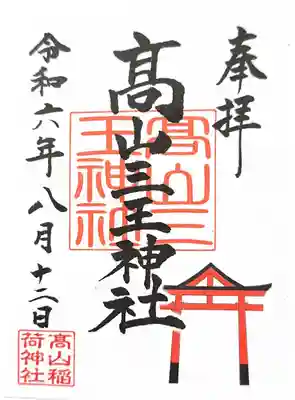 奉拝
髙山三王神社
髙山三
王神社
令和六年八月十二日
高山稲
荷神社